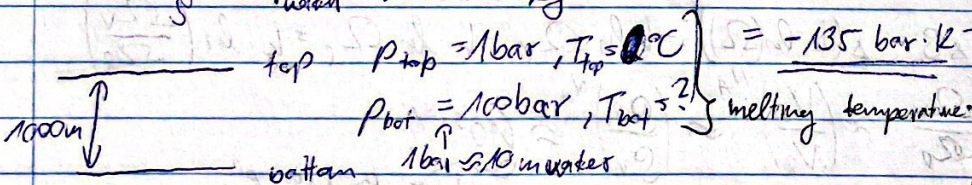 top P_top = 1bar, T_top = 0°C } = -135 bar·K⁻
1000m P_bot = 100bar, T_bot = ? } melting temperature.
bottom 1bar ≈ 10 m water